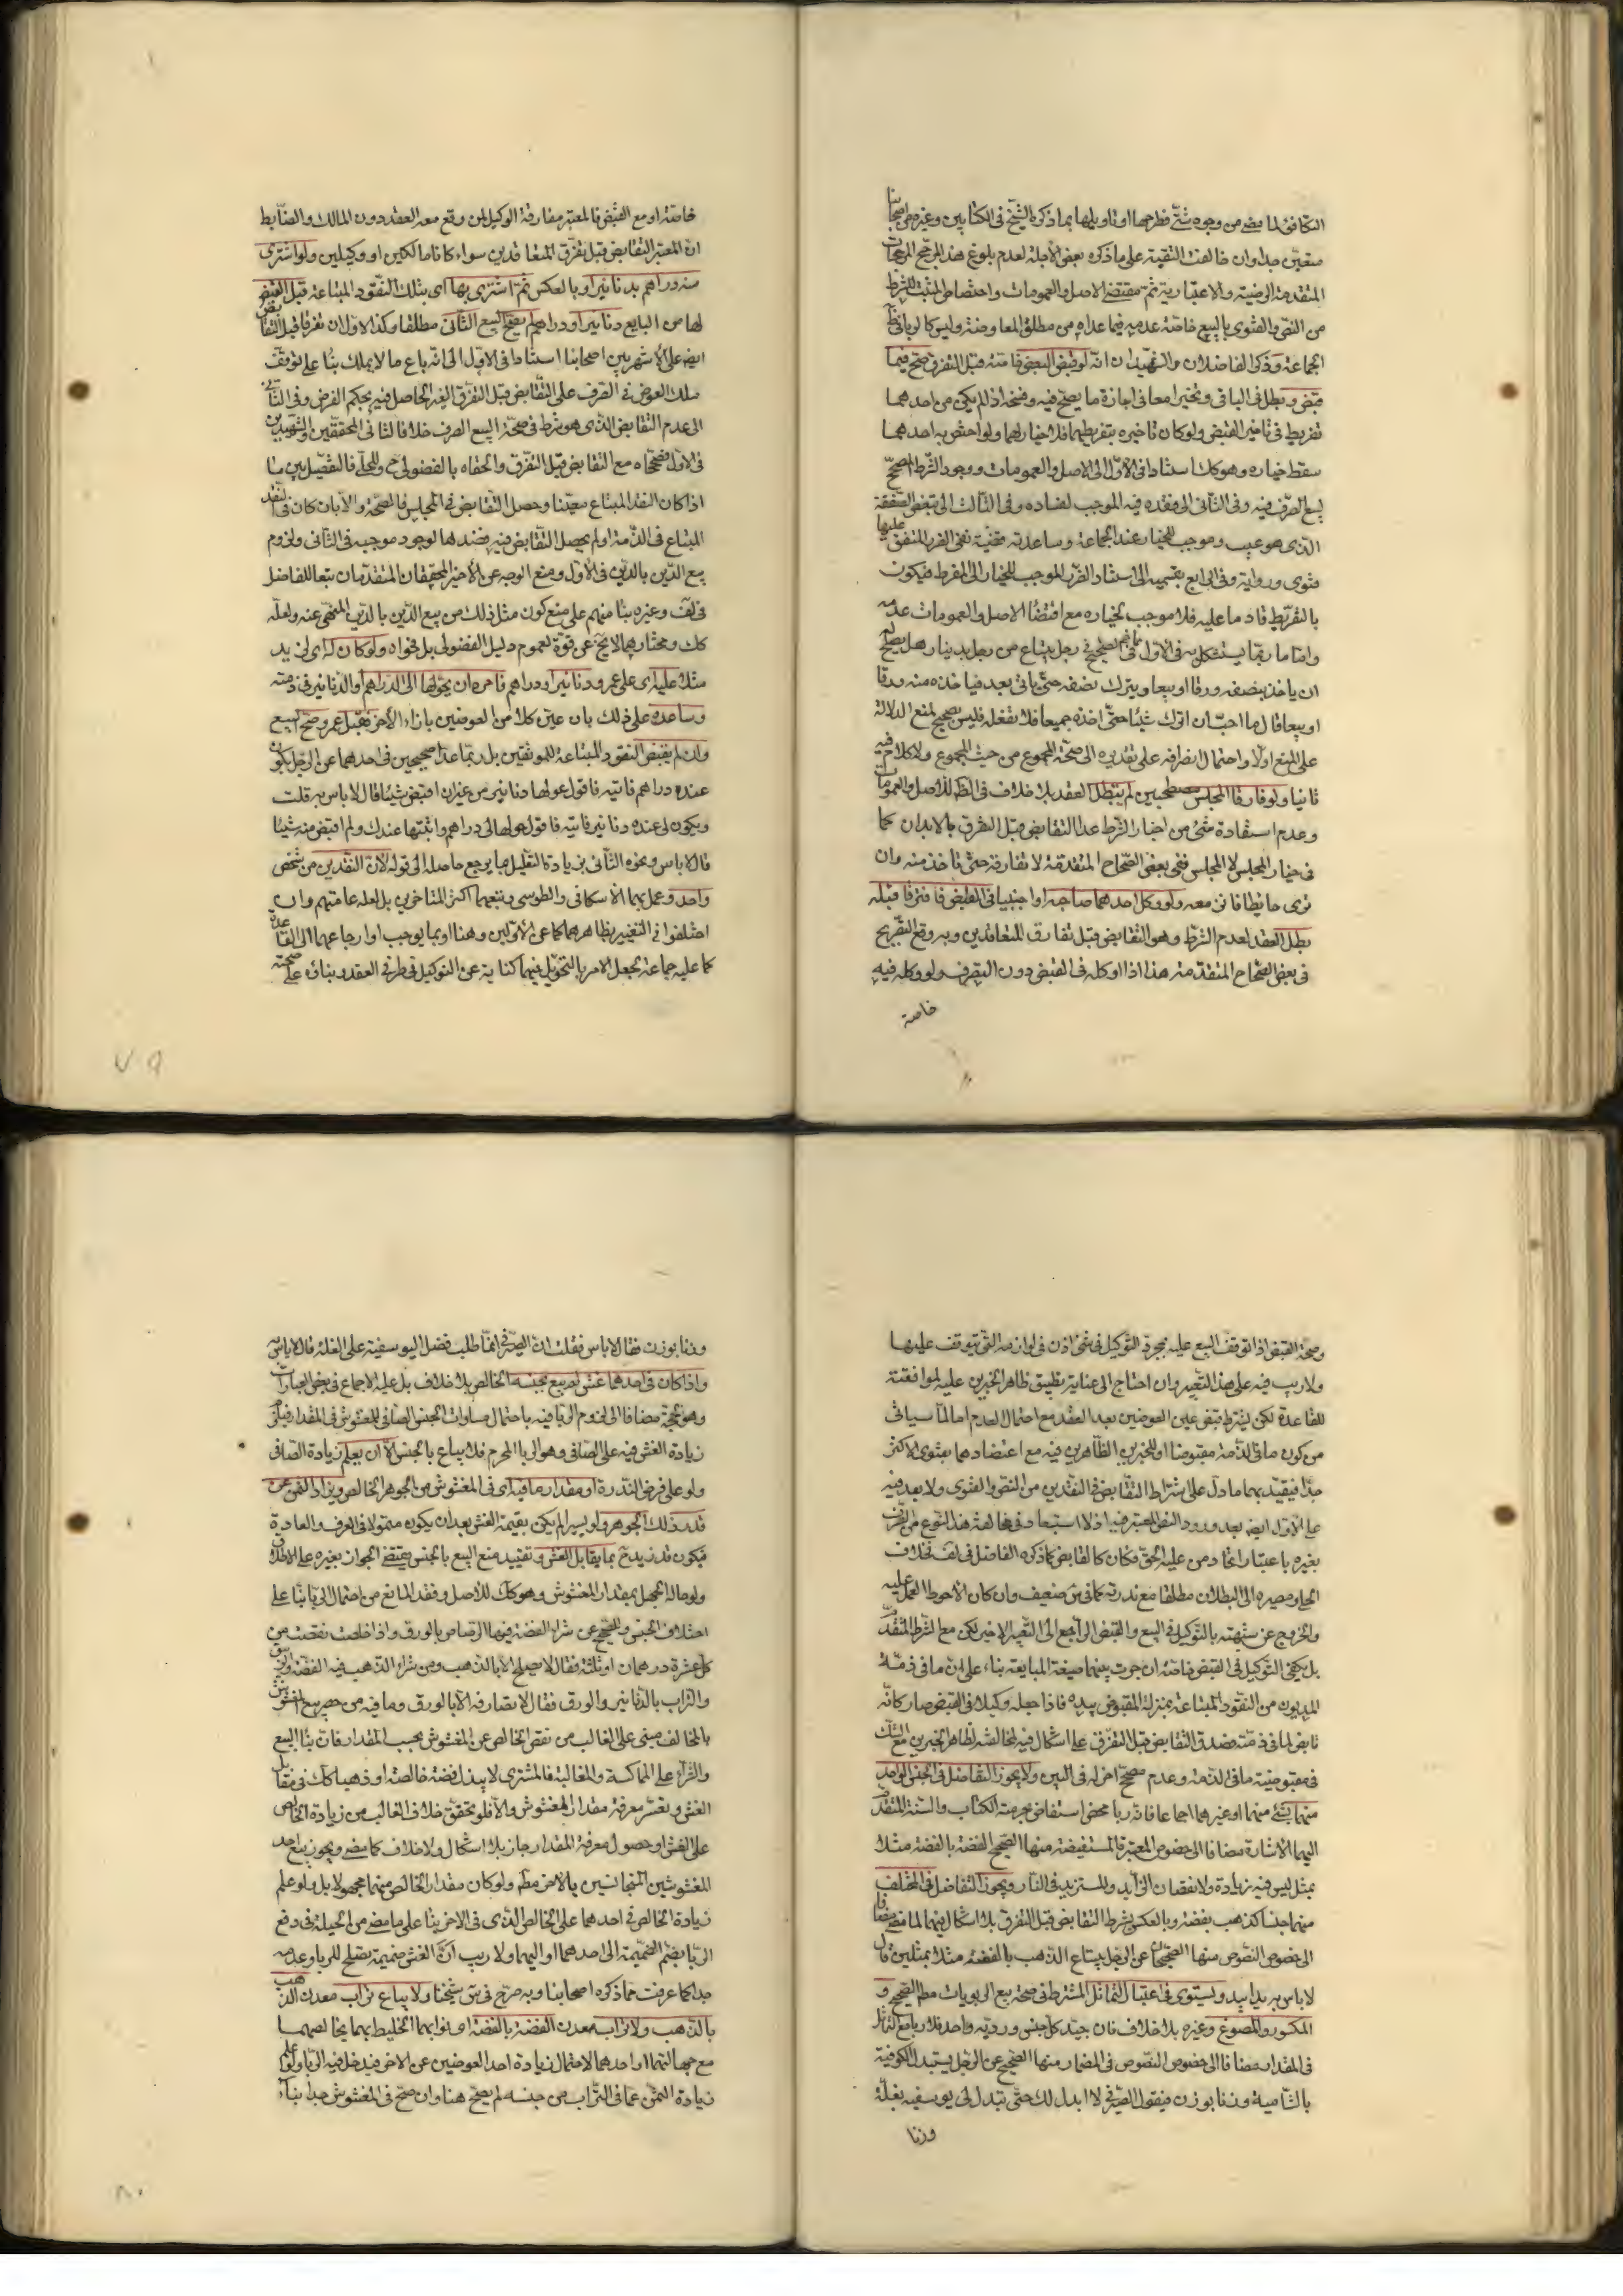 التكافؤ لما مضى من وجوه شتّى فطرحها او تاويلها بما ذكره الشّيخ فى الكتابين وغيره من اصحابنا
متعيّن جدا وان خالفت التقيّة على ما ذكره بعض الاجلّة لعدم بلوغ هذا المرجّح المرجّحات
المتقدمة الرضيّة والاعتبارية ثمّ مقتضى الاصل والعمومات واختصاص المثبت للشّرط
من النصّ والفتوى بالبيع خاصّة عدمه فيما عداه من مطلق المعاوضة وليس كالربا
الجماعة وذكر الفاضلان والشّهيدان انّه لو قبض البعض خاصّة قبل التفرّق صحّ فيما
قبض وبطل فى الباقى وتخيّرا معا فى اجازة ما يصحّ فيه وفسخه اذا لم يكن من احدهما
تفريط فى تاخير القبض ولو كان تاخيره بتفريطهما فلا خيار لهما ولو اختصّ به احدهما
سقط خياره وهو كك استنادا فى الاوّل الى الاصل والعمومات ووجود الشّرط المصحّح
لبيع الصّرف فيه وفى الثّانى الى فقده فيه الموجب لفساده وفى الثّالث الى تبعّض الصّفقة
الّذى هو عيب وموجب للخيار عند الجماعة وساعدته قضيّة نفى الضّرر المتّفق عليها
فتوى ورواية وفى الرابع بقسميه الى استناد الضّرر الموجب للخيار الى المفرط فيكون
بالتّفريط قادما عليه فلا موجب لخياره مع اقتضاء الاصل والعمومات عدمه
وامّا ما ربّما يستشكل به فى الاوّل بما فى الصّحيح فى رجل يبتاع من رجل بدينار هل يصلح له
ان ياخذ بنصفه ورقا او بيعا ويترك نصفه حتّى ياتى بعد فياخذه منه ورقا
او بيعا قال ما احبّ ان اترك شيئا حتّى اخذه جميعا فلا تفعله فليس بصحيح لمنع الدلالة
على المنع اولا واحتمال انصرافه على تقديره الى صحّة المجموع من حيث المجموع ولا كلام فيه
ثانيا ولو فارقا المجلس مصطحبين لم يبطل العقد بلا خلاف فى الظّ للاصل والعمومات
وعدم استفادة شئ من اخبار الشّرط عدا التّقابض قبل التفرّق بالابدان كما
فى خيار المجلس لا المجلس ففى بعض الصّحاح المتقدمة لا تفارقه حتّى تاخذ منه وان
نزى حائطا فانز معه ولو وكل احدهما صاحبه او اجنبيا فى القبض فافترقا قبله
بطل العقد لعدم الشّرط وهو التّقابض قبل تفارق المتعاقدين وبه وقع التّصريح
فى بعض الصّحاح المتقدّمة هذا اذا وكله فى القبض دون الصّرف ولو وكله فيه
خاصة
خاصّة او مع القبض فالمعتبر مفارقة الوكيل لمن وقع معه العقد دون المالك والضّابط
انّ المعتبر التّقابض قبل تفرّق المتعاقدين سواء كانا مالكين او وكيلين ولو اشترى
منه دراهم بدنانير او بالعكس ثمّ اشترى بها اى بتلك النّقود المبتاعة قبل القبض
لها من البايع دنانير او دراهم لم يصحّ البيع الثّانى مطلقا وكذا الاول ان تفرّقا قبل التّقابض
ايضا على الاشهر بين اصحابنا استنادا فى الاوّل الى انّه باع ما لا يملك بناء على توقّف
ملك العوض فى الصّرف على التّقابض قبل التفرّق الغير الحاصل فيه بحكم الفرض وفى الثّانى
الى عدم التّقابض الّذى هو شرط فى صحّة البيع الصّرف خلافا لثانى المحقّقين والشّهيدين
فى الاوّل فصحّحاه مع التّقابض قبل التفرّق والحقاه بالفضولى ح وللحلّى فالتفصّيل بين ما
اذا كان النّقد المبتاع معيّنا وحصل التّقابض فى المجلس فالصّحّة والّا بان كان فى النّقد
المبتاع فى الذّمة او لم يحصل التّقابض فيه فضدّها لوجود موجبه فى الثّانى ولزوم
بيع الدّين بالدّين فى الاوّل ومنع الوجه عن الاخير المحقّقان المتقدّمان تبعا للفاضل
فى لف وغيره بناء منهم على منع كون مثل ذلك من بيع الدّين بالدّين المنهىّ عنه ولعلّه
كك ومختارهما لا يخ عن قوة لعموم دليل الفضولى بل فحواه ولو كان له اى لزيد
مثلا عليه اى على عمرو دنانير او دراهم فامره ان يحوّلها الى الدراهم او الدّنانير فى ذمّته
وساعده على ذلك بان عيّن كلا من العوضين بازاء الاخر فقبل عمرو صحّ البيع
وان لم يقبض النّقود المبتاعة للموثّقين بل ربّما عدّا صحيحين فى احدهما عن الرّجل يكون
عنده دراهم فاتيه فاقول حولها دنانير من غير ان اقبض شيئا قال لا باس به قلت
ويكون لى عنده دنانير فاتيه فاقول حولها لى دراهم واثبتها عندك ولم اقبض منه شيئا
قال لا باس ونحوه الثّانى بزيادة التّعليل بما يرجع حاصله الى قوله لانّ النّقدين من شخص
واحد وعمل بهما الاسكافى والطّوسى وتبعهما اكثر المتاخرين بل لعلّه عامتهم وان
اختلفوا فى التّعبير بظاهرهما كما عن الاوّلين وهنا او بما يوجب ارجاعهما الى القاعدة
كما عليه جماعة بجعل الامر بالتّحويل فيهما كناية عن التّوكيل فى طرفى العقد وبناؤه على صحته
٧٩
وصحّة القبض اذا توقّف البيع عليه بمجرد التّوكيل فى شئ اذن فى لوازمه الّتى يتوقّف عليها
ولا ريب فيه على هذا التّعبير وان احتاج الى عناية تطبيق ظاهر الخبرين عليه لموافقته
للقاعدة لكن يشترط قبض عين العوضين بعد العقد مع احتمال العدم اما لما سياتى
من كون ما فى الذّمة مقبوضا او للخبرين الظّاهرين فيه مع اعتضادهما بفتوى الاكثر
جدّا فيقيّد بهما ما دلّ على اشتراط التّقابض فى النّقدين من النّصّ والفتوى ولا بعد فيه
على الاوّل ايضا بعد ورود النّصّ المعتبر فيه اذ لا استبعاد فى مخالفة هذا النّوع من الصّرف
بغيره باعتبار اتحاد من عليه الحقّ فكان كالقابض كما ذكره الفاضل فى لف فخلاف
الحلّى ومصيره الى البطلان مطلقا مع ندرته كما فى ضعيف وان كان الاحوط العمل عليه
والخروج عن شبهته بالتّوكيل فى البيع والقبض الراجع الى التّعبير الاخير لكن مع الشّرط المتقدّم
بل يكفى التّوكيل فى القبض خاصّة ان جرت بينهما صيغة المبايعة بناء على انّ ما فى ذمّة
المديون من النّقود المبتاعة بمنزلة المقبوض بيده فاذا جعله وكيلا فى القبض صار كانّه
قابض لما فى ذمّته فصدق التّقابض قبل التفرّق على اشكال فيه لمخالفته لظاهر الخبرين مع الشّك
فى مقبوضيّة ما فى الذّمّة وعدم مصحّح اخر له فى البين ولا يجوز التّفاضل فى الجنس الواحد
منهما بشئ منهما او غيرهما اجماعا فانّه ربا محض استفاض بحرمته الكتاب والسّنّة المتقدّم
اليهما الاشارة مضافا الى خصوص المعتبرة المستفيضة منها الصّحيح الفضّة بالفضّة مثلا
بمثل ليس فيه زيادة ولا نقصان الزّايد والمستزيد فى النّار ويجوز التّفاضل فى المختلف
منهما جنسا كذهب بفضّة وبالعكس بشرط التّقابض قبل التفرّق بلا اشكال فيهما لما مضى مضافا
الى خصوص النّصوص منها الصّحيحان عن الرّجل يبتاع الذّهب بالفضّة مثلا بمثلين قال
لا باس به يدا بيد ويستوى فى اعتبار التّماثل المشترط فى صحّة بيع الربويات مط الصّحيح و
المكسور والمصوغ وغيره بلا خلاف فان جيّد كل جنس ورديّه واحد فلا ربا مع التّماثل
فى المقدار مضافا الى خصوص النّصوص فى المضمار منها الصّحيح عن الرّجل يستبدل الكوفية
بالشّامية وزنا بوزن فيقول الصّيرفى لا ابدل لك حتّى تبدل لى يوسفيه بغلّة
وزنا
وزنا بوزن فقال لا باس فقلت انّ الصّيرفى انّما طلب فضل اليوسفية على الغلّة فقال لا باس به
واذا كان فى احدهما غشّ لم يبع بجنسه الخالص بلا خلاف بل عليه الاجماع فى بعض العبارات
وهو الحجّة مضافا الى لزوم الربا فيه باحتمال مساوات الجنس الصّافى للمغشوش فى المقدار فيلزم
زيادة الغشّ فيه على الصّافى وهو الربا المحرم فلا يباع بالجنس الّا ان يعلم زيادة الصّافى
ولو على فرض النّدرة او مقدار ما فيه اى فى المغشوش من الجوهر الخالص ويزاد الثّمن عن
قدر ذلك الجوهر ولو يسيرا لم يكن بقيمة الغشّ بعد ان يكون متموّلا فى العرف والعادة
فيكون قد زيد ح بما يقابل الغشّ وتقييد منع البيع بالجنس يقتضى الجواز بغيره على الاطلاق
ولو حالة الجهل بمقدار المغشوش وهو كك للاصل وفقد المانع من احتمال الربا بناء على
اختلاف الجنس وللصّحيح عن شراء الفضّة فيها الرّصاص بالورق واذا خلصت نقصت من
كل عشرة درهمان او ثلثة فقال لا يصلح الّا بالذّهب وعن شراء الذّهب فيه الفضّة والزّيبق
والتّراب بالدّنانير والورق فقال لا تصارفه الّا بالورق وما فيه من حصر بيع المغشوش
بالمخالف مبنى على الغالب من نقص الخالص عن المغشوش بحسب المقدار فان بناء البيع
والشّراء على المماكسة والمغالبة فالمشترى لا يبذل فضّة خالصة او ذهبا كك فى مقابل
الغشّ وتعسّر معرفة مقدار المغشوش والّا فلو تحقّق خلاف الغالب من زيادة الخالص
على الغشّ او حصول معرفة المقدار جاز بلا اشكال ولا خلاف كما مضى ويجوز بيع احد
المغشوشين المتجانسين بالاخر مط ولو كان مقدار الخالص منهما مجهولا بل ولو علم
زيادة الخالص فى احدهما على الخالص الّذى فى الاخر بناء على ما مضى من الحيلة فى دفع
الربا بضمّ الضّميمة الى احدهما او اليهما ولا ريب انّ الغشّ ضميمة يصلح للربا وعدمه
جدا كما عرفت ممّا ذكره اصحابنا وبه صرّح فى شيخنا ولا يباع تراب معدن الذّهب
بالذّهب ولا تراب معدن الفضّة بالفضّة او ترابهما الخليط بهما بخالصهما
مع جهالتهما او احدهما لاحتمال زيادة احد العوضين عن الاخر فيدخل فيه الربا ولو علم
زيادة الثّمن عمّا فى التّراب من جنسه لم يصحّ هنا وان صحّ فى المغشوش جدا بناء
٨٠